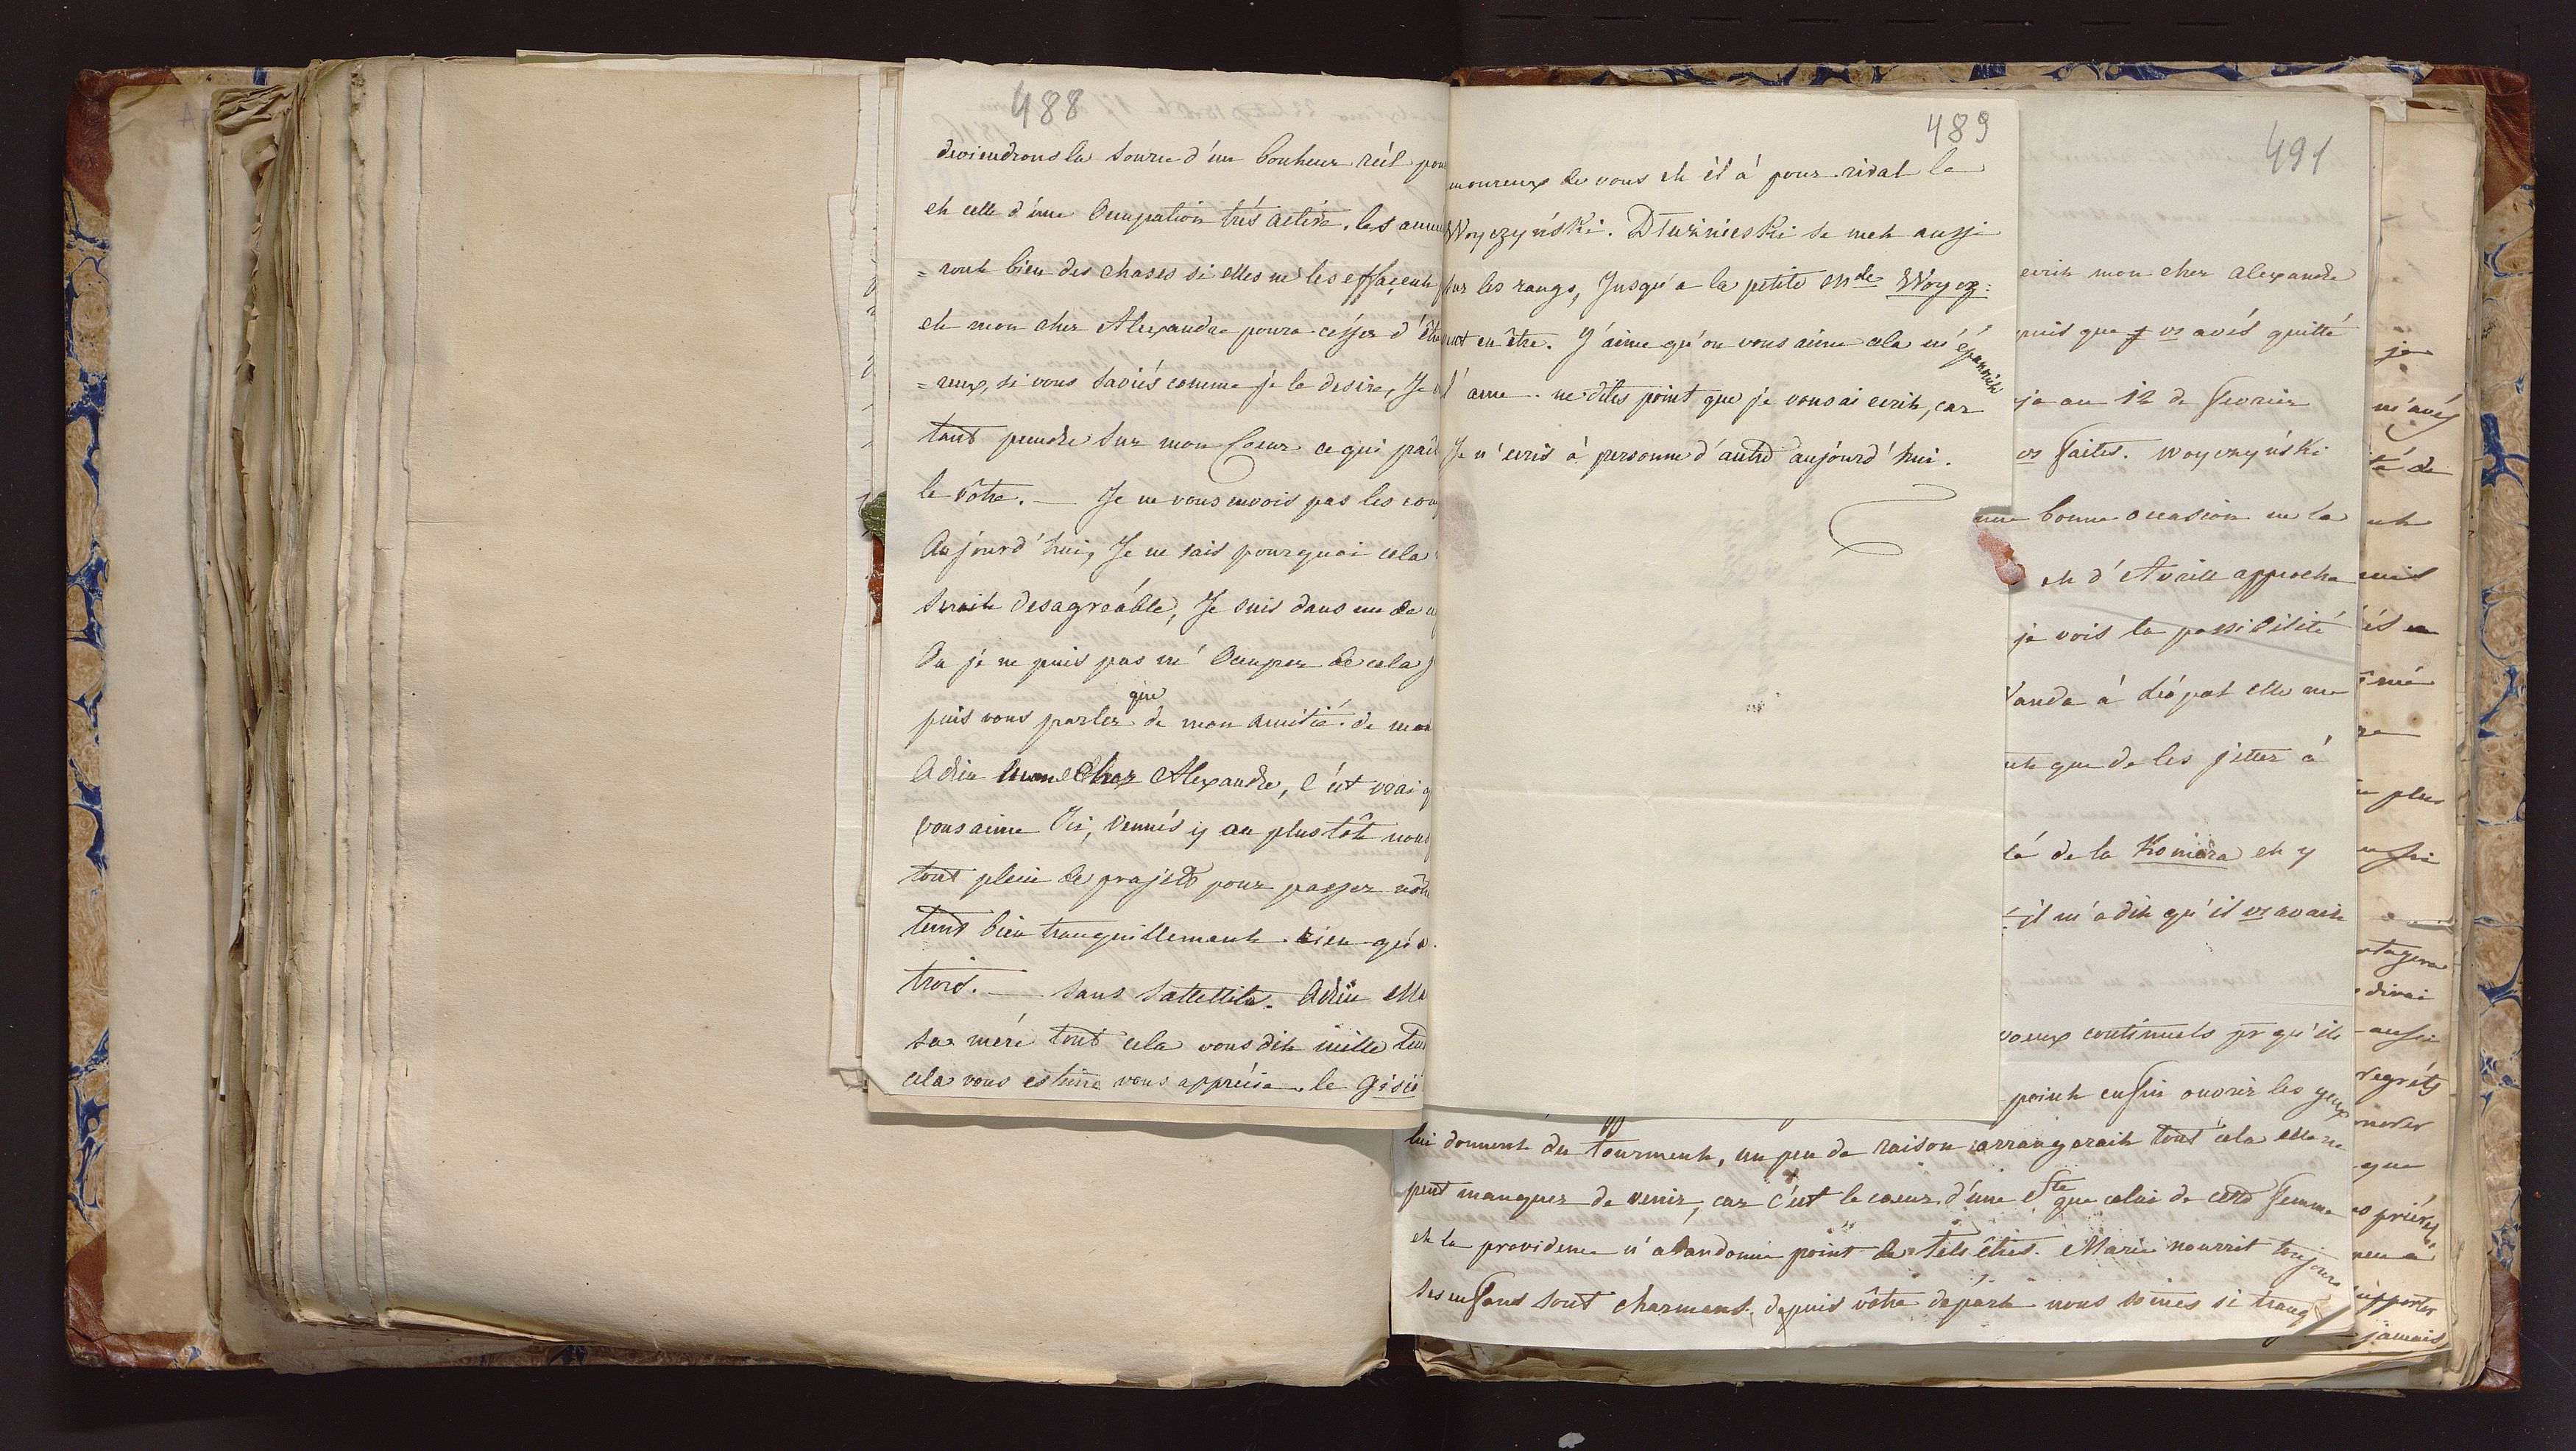 488
deviendrons la source d'un bonheur réél pou
et celle d'une Occupation très active. les
=ront bien des choses si elles ne les effaçent
et mon cher Alexandre poura cesser d'être
=reux, si vous saviés comme je le desire, Je
tout prendre sur mon Coeur ce qui
le vôtre. — Je ne vous envois pas les
Aujourd'hui, Je ne sais pourquoi cela
serait desagreáble, Je suis dans un de
Ou je ne puis pas m'Occuper de cela
puis vous parler que de mon amitié. de mon
Adieu mon Cher Alexandre, c'est vrai q
vous aime Ici, vennés y au plus tôt nous
tout plein de projets pour passer nôtre
tems bien tranquillement. rien qu'a
trois. — sans sattellite. Adieu elle
sa mére tout cela vous dit mille
cela vous estime vous apprécie. le
489
moureux de vous et il à pour rival le
Woyczyński. Dłużnieski se met aussi
sur les rangs, Jusqu'a la petite Mde Woycz:
veut en être. J'aime qu'on vous aime cela m'épanouit
l'ame. ne dites point que je vous ai ecrit, car
Je n'ecris à personne d'autre aujourd'hui.
491
ecrit mon cher Alexandre
puis que vs avés quitté
ja au 12 de fevrier
vs faites. Woyczyński
une bonne occasion en la
et d'Avrill approche
je vois la possibilité
Vanda à
que de les jetter à
de la Koniera et y
il m'a dit qu'il vs avait
voeux continuels pr qu'il
point enfin ouvrir les yeux
lui donnent du tourment, un peu de raison arrangerait tout cela elle ne
peut manquer de venir, car c'est le coeur d'une Ste que celui de cette femme
et la providence n'abandonne point de tels êtres. Marie nourrit toujours
ses enfans sont charmans. depuis vôtre départ nous somes si tranq
je
m'avés
té de
mis
és
plus
aussi
tagera
dirai
aussi
regréts
que
priéres
supporter
jamais